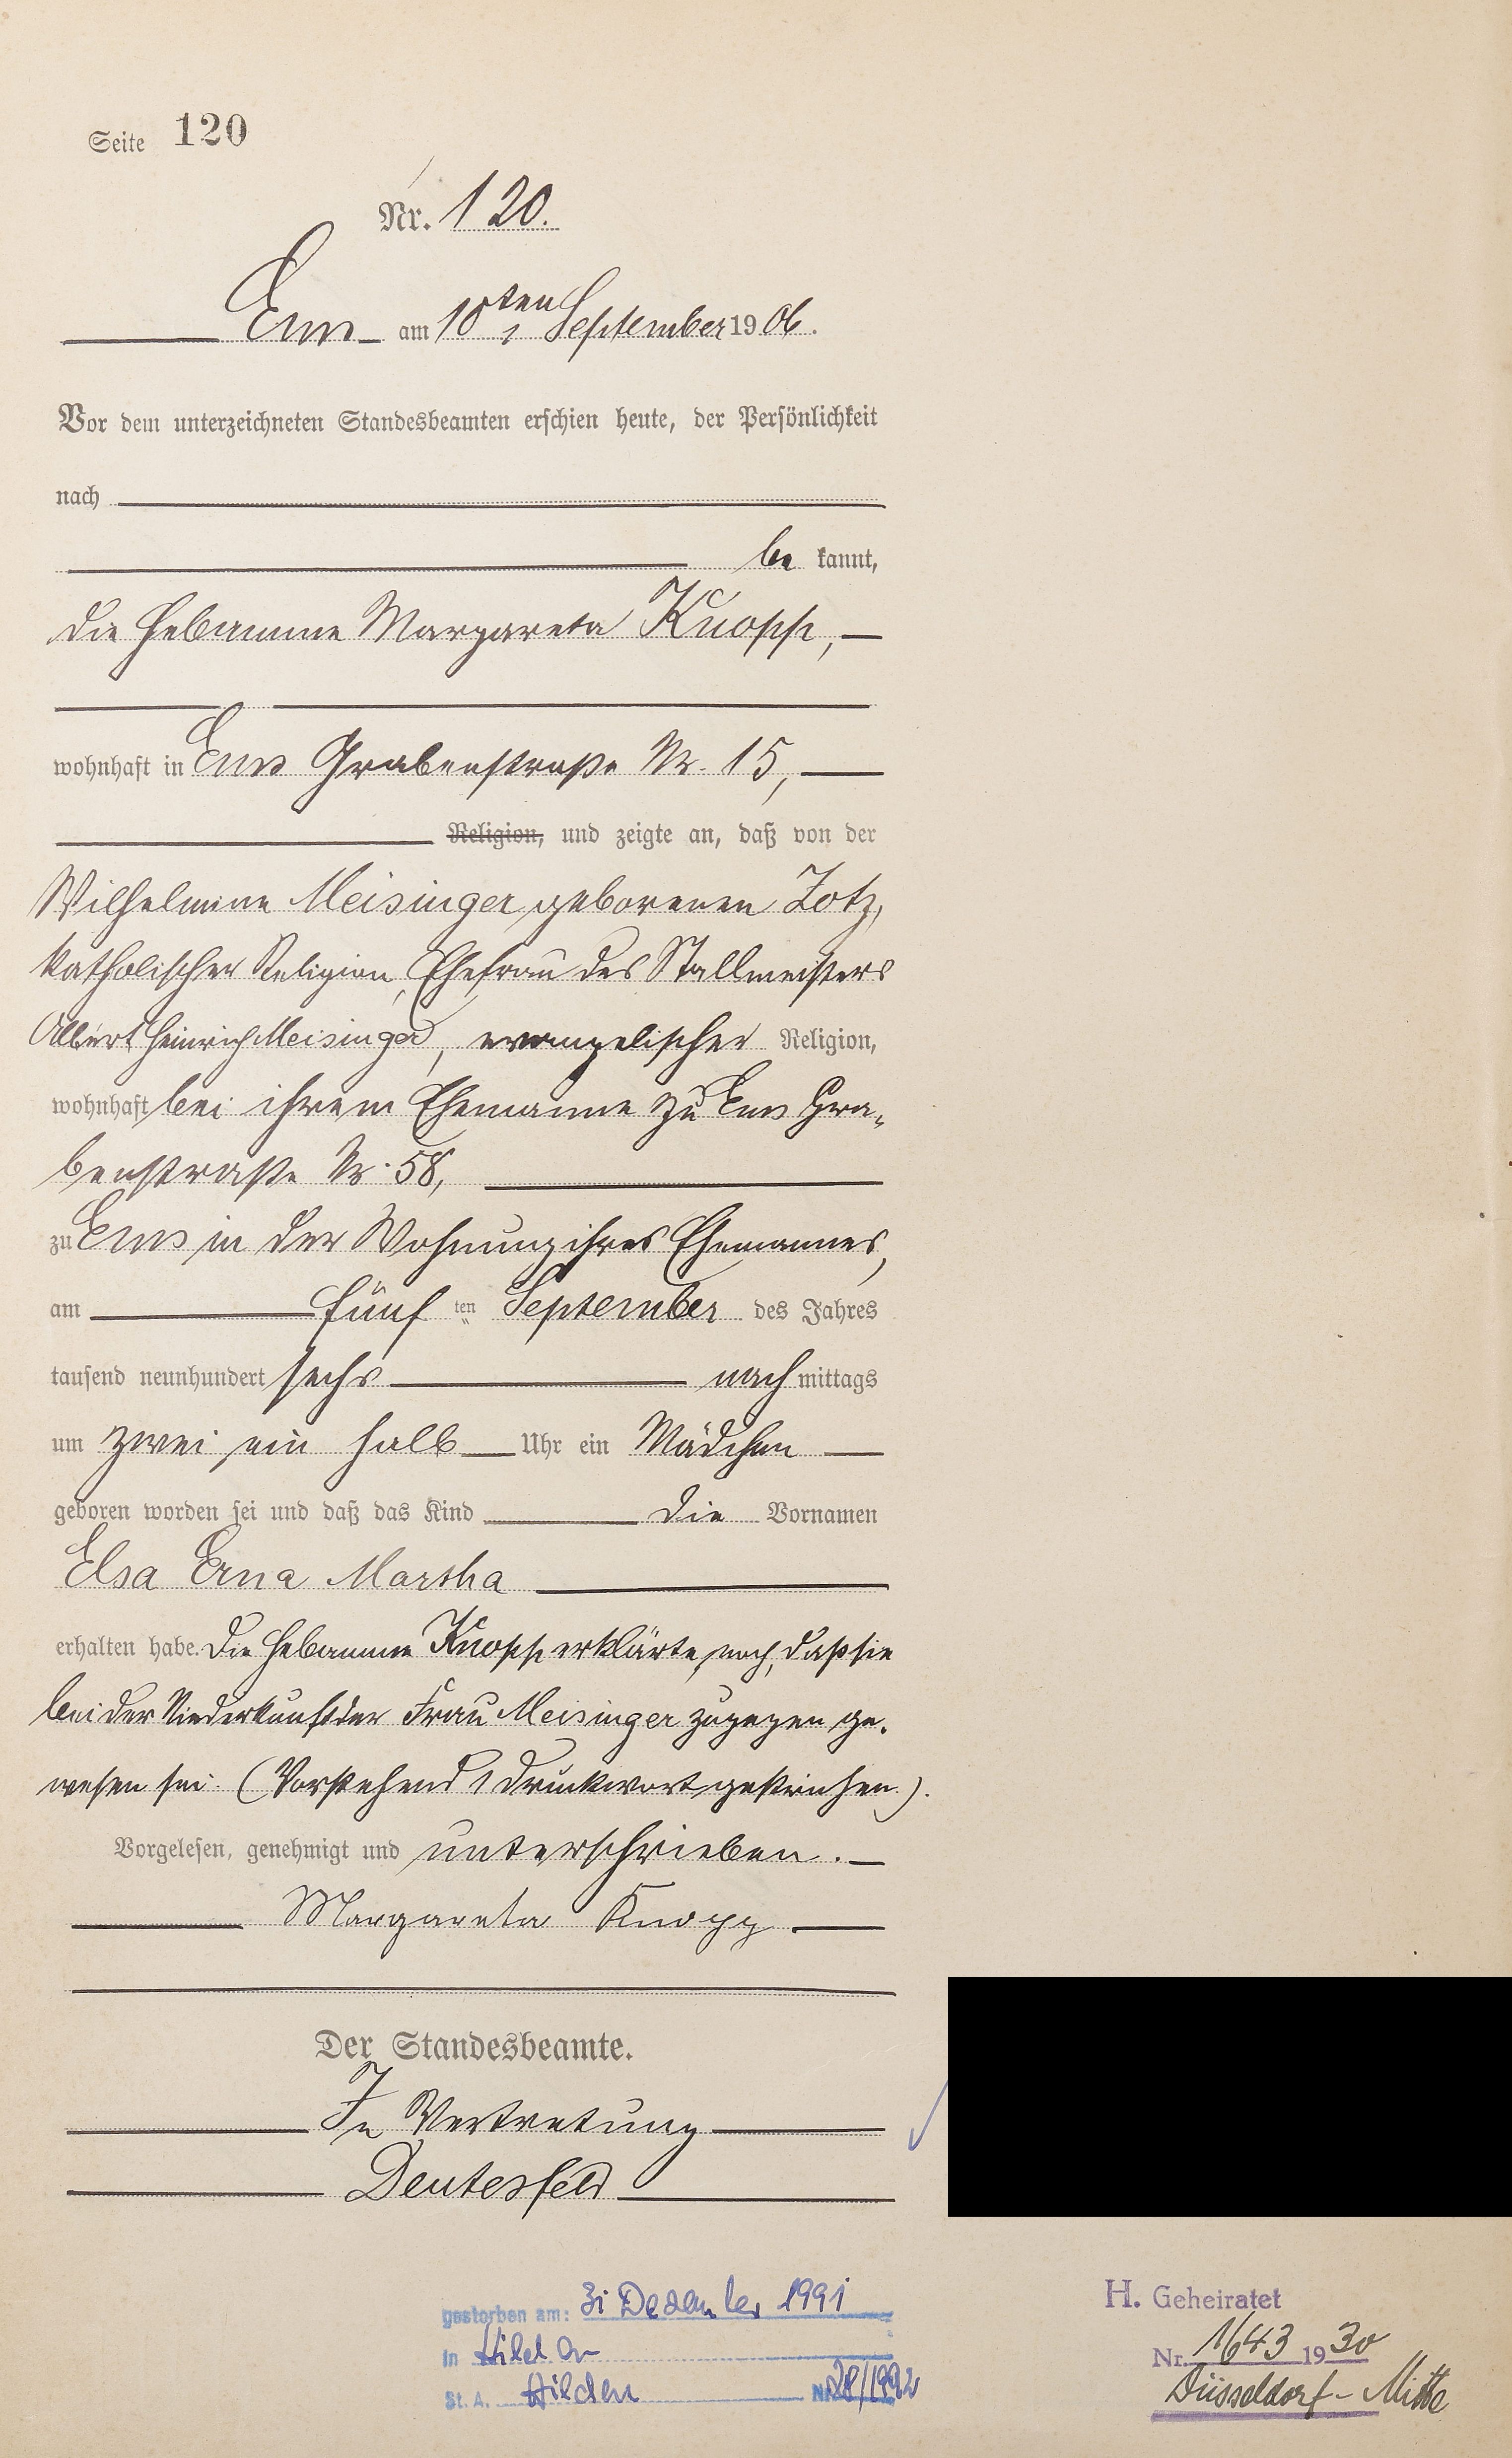 Seite 120
Nr. 120.
Ems am 10ten September 1906.
Vor dem unterzeichneten Standesbeamten erschien heute, der Persönlichkeit
nach
be kannt,
die Hebamme Margareta Knopp,
wohnhaft in Ems Grabenstraße Nr. 15,
Religion, und zeigte an, daß von der
Wilhelmine Meisinger geborenen Zotz,
katholischer Religion, Ehefrau des Stallmeisters
Albert Heinrich Meisinger, evangelischer Religion,
wohnhaft bei ihrem Ehemanne zu Ems Gra-
benstraße Nr. 58,
zu Ems in der Wohnung ihres Ehemannes,
am fünf ten September des Jahres
tausend neunhundert sechs nach mittags
um zwei ein halb Uhr ein Mädchen
geboren worden sei und daß das Kind die Vornamen
Elsa Erna Martha
erhalten habe. Die Hebamme Knopp erklärte noch, daß sie
bei der Niederkunft der Frau Meisinger zugegen ge-
wesen sei. (Vorstehend 1 Druckwort gestrichen.).
Vorgelesen, genehmigt und unterschrieben.
Margareta Knopp
Der Standesbeamte.
In Vertretung
Deutesfeld
gestorben am: 31 Dezember 1991
in Hilden
St. A. Hilden Nr. 28/1992
H. Geheiratet
Nr. 1643 1930
Düsseldorf-Mitte